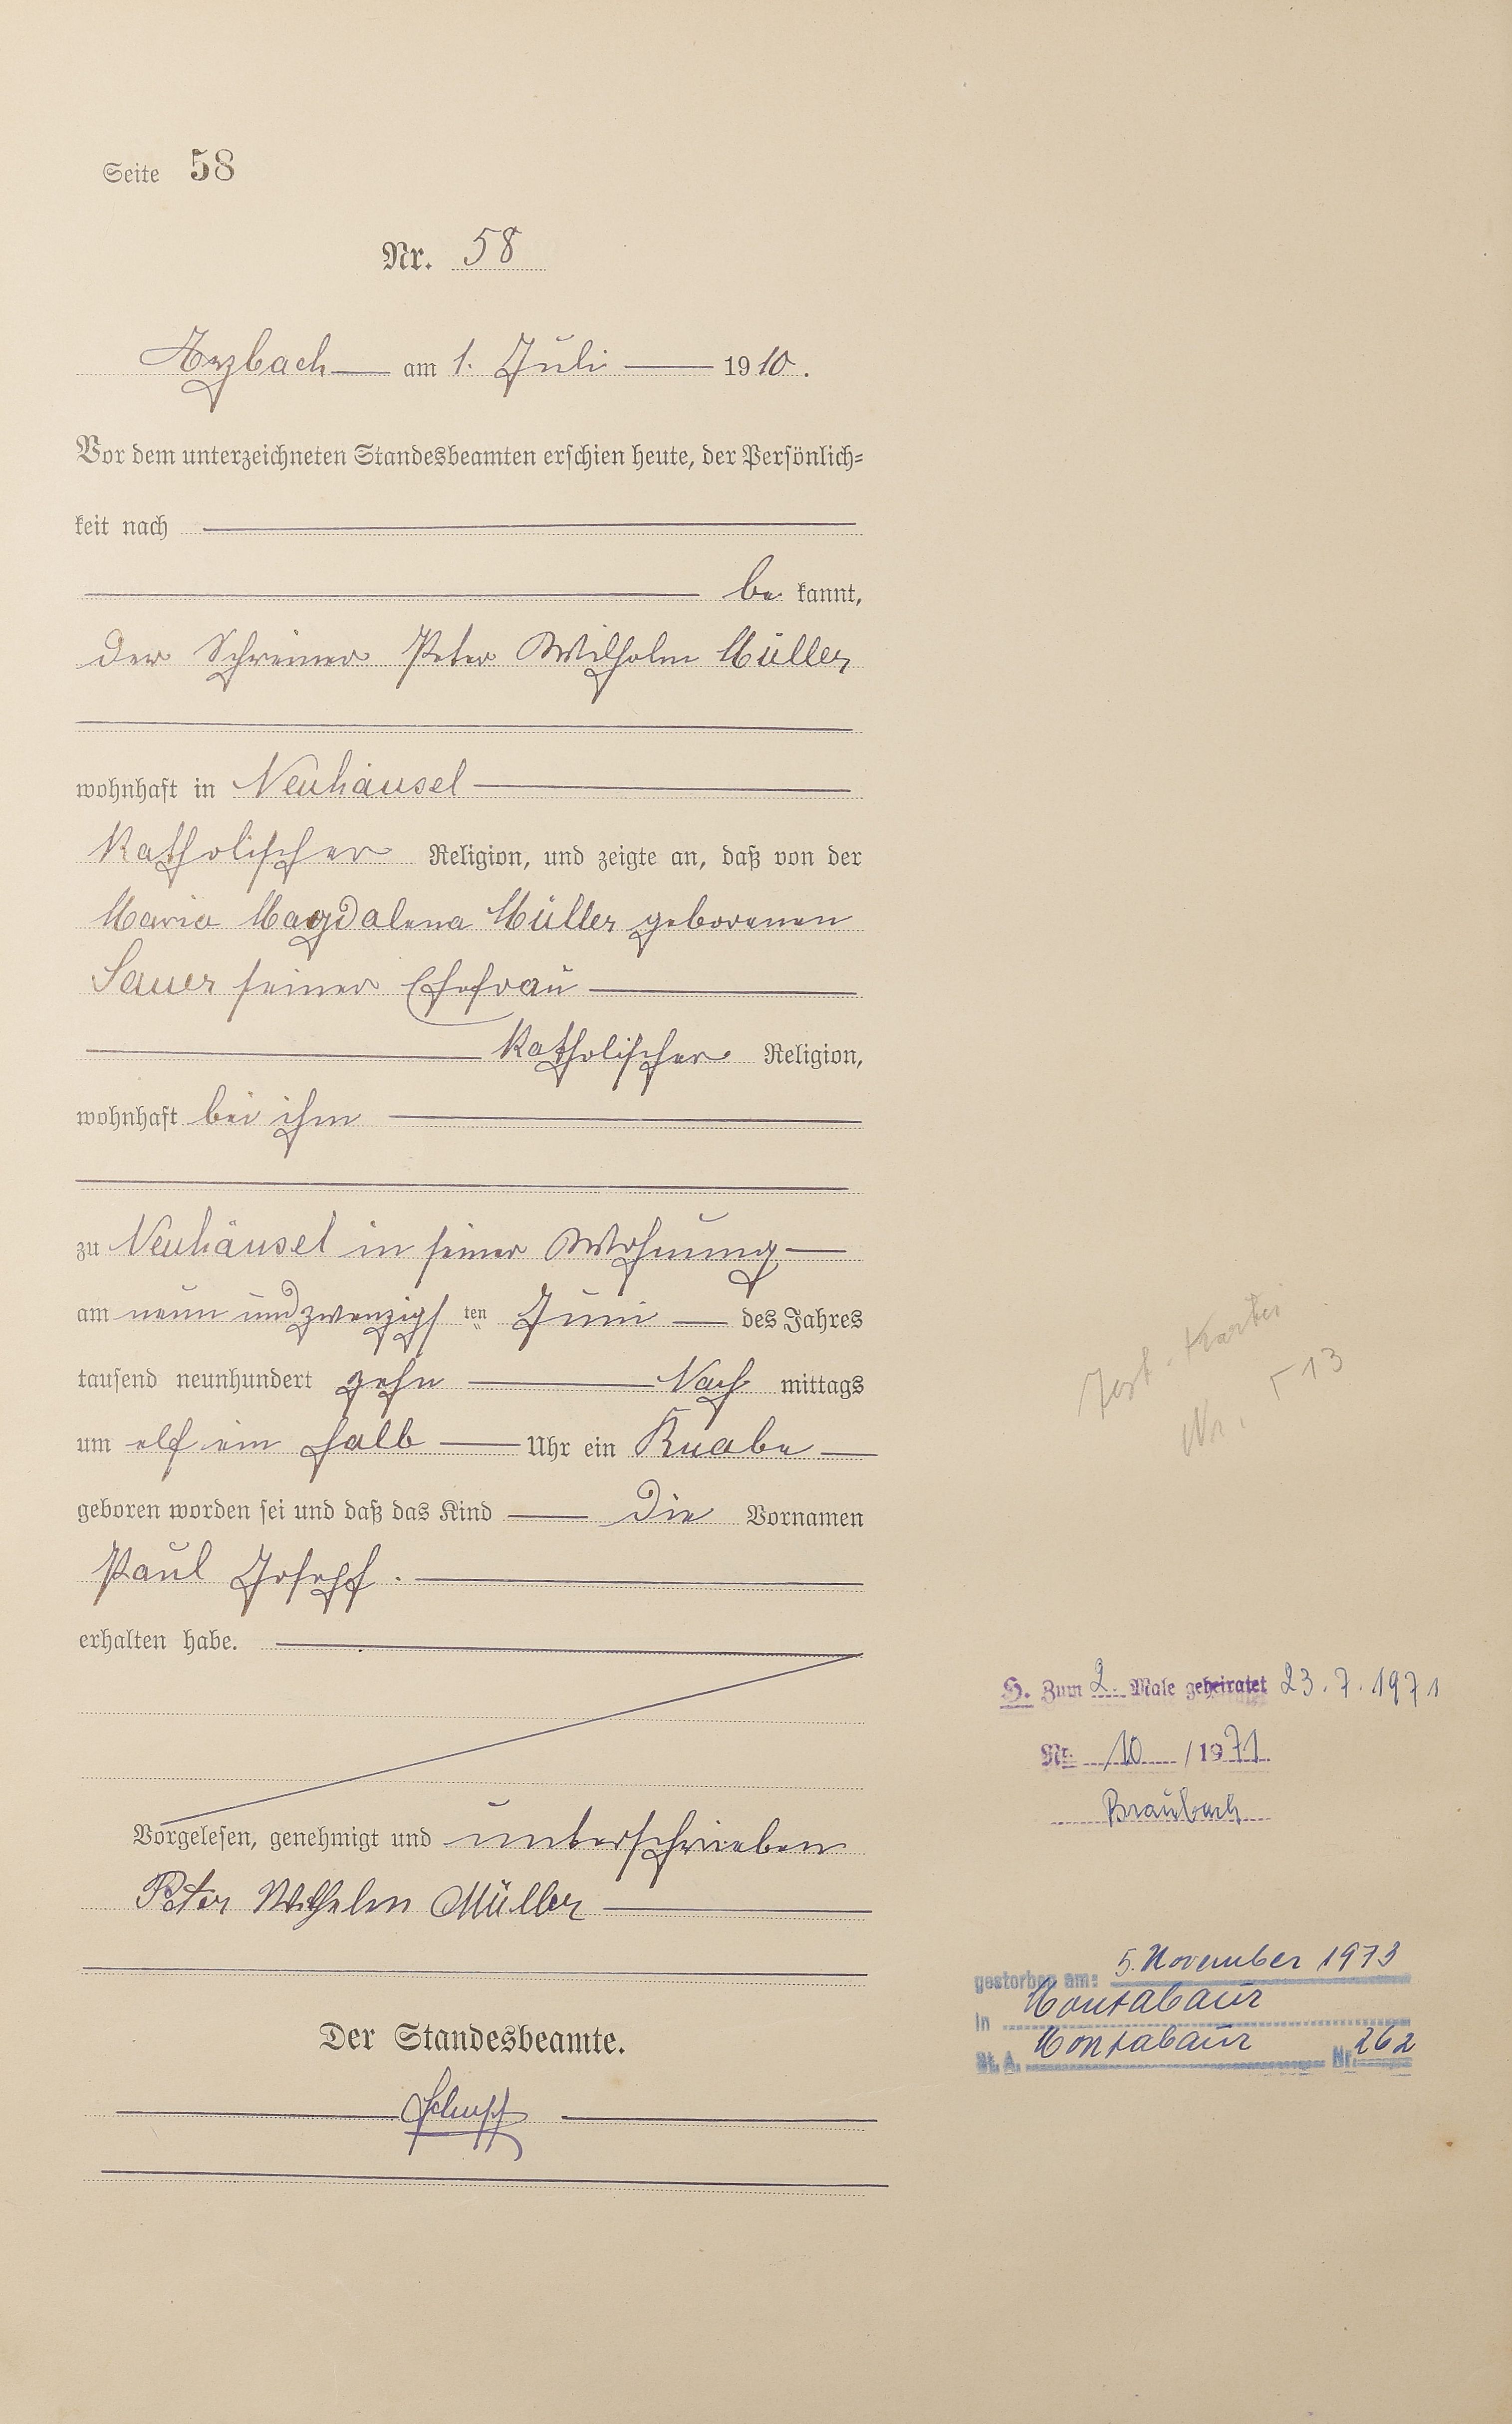 Seite 58
Nr. 58
Arzbach am 1. Juli 1910.
Vor dem unterzeichneten Standesbeamten erschien heute, der Persönlich-
keit nach
be kannt,
der Schreiner Peter Wilhelm Müller
wohnhaft in Neuhäusel
katholischer Religion, und zeigte an, daß von der
Maria Magdalena Müller geborenen
Sauer seiner Ehefrau
katholischer Religion,
wohnhaft bei ihm
zu Neuhäusel in seiner Wohnung
am neun und zwanzigs ten Juni des Jahres
tausend neunhundert zehn Nach mittags
um elf ein halb Uhr ein Knabe
geboren worden sei und daß das Kind die Vornamen
Paul Joseph.
erhalten habe.
Vorgelesen, genehmigt und unterschrieben
Peter Wilhelm Müller
Der Standesbeamte.
Nr. 513
H. Zum 2. Male geheiratet 23.7.1971
Nr. 10 / 1971
Braubach
gestorben am: 5. November 1973
in Montabaur
St. A. Montabaur Nr. 262